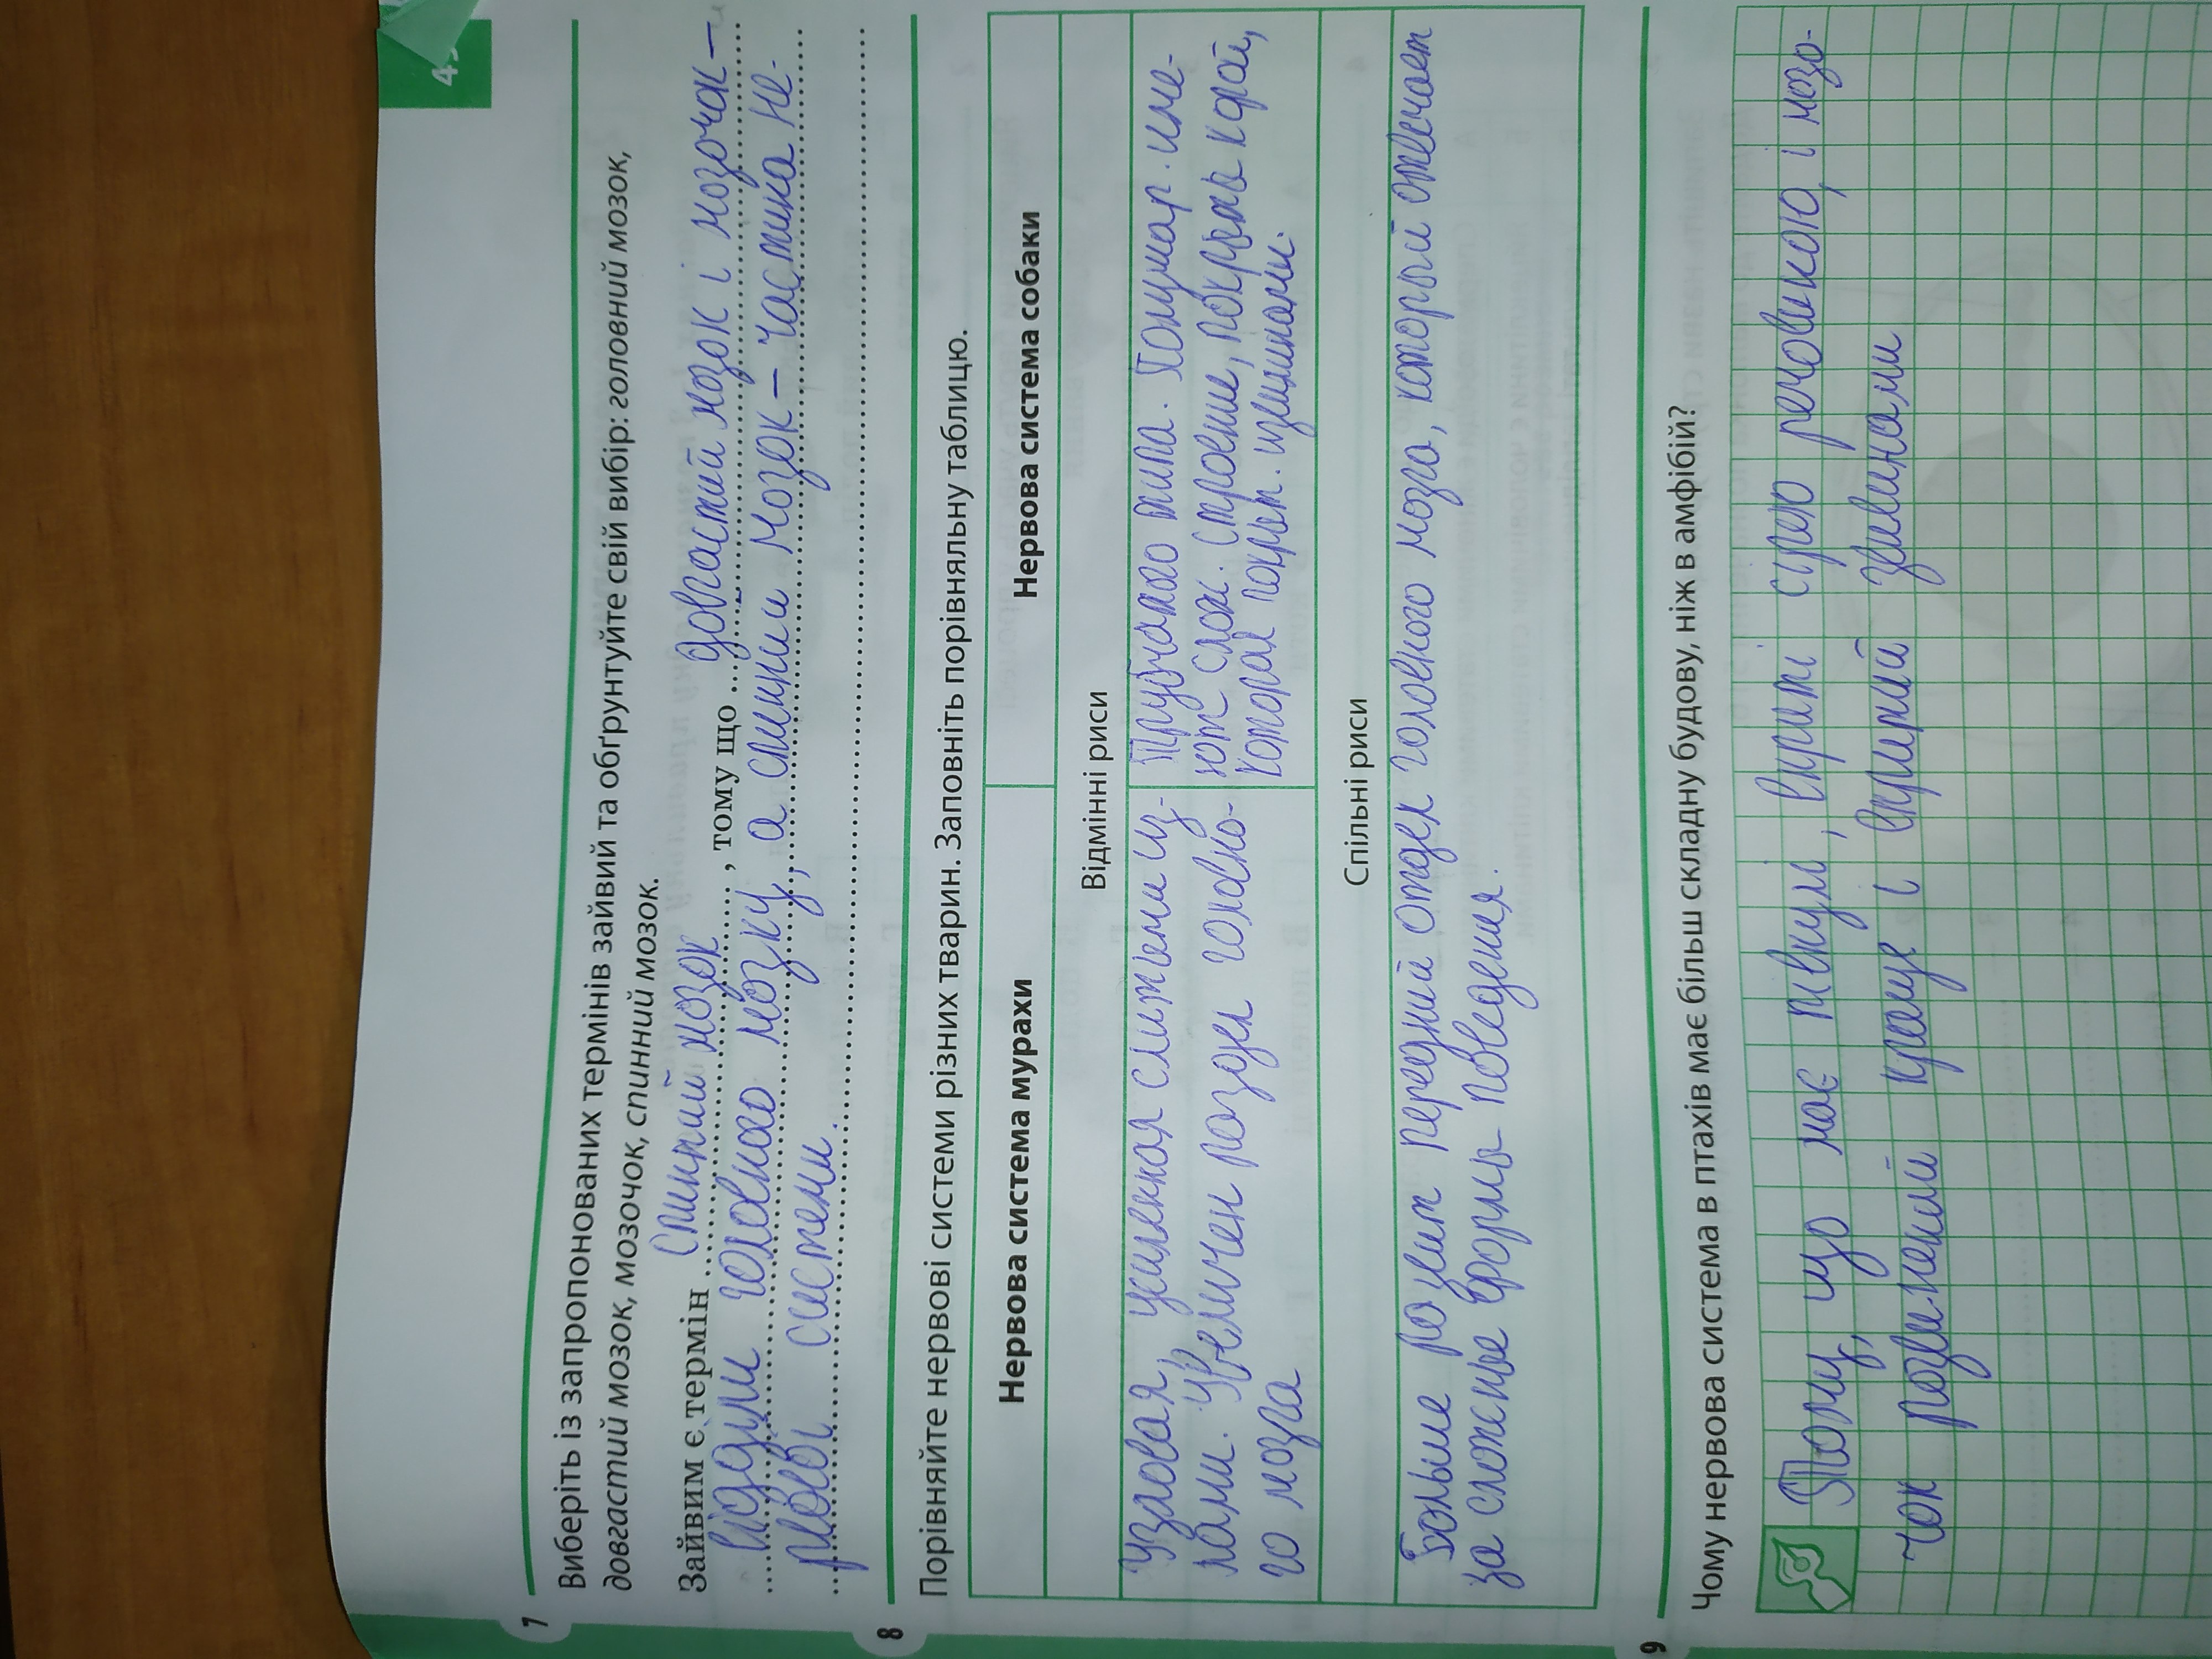 7
Виберіть із запропонованих термінів зайвий та обґрунтуйте свій вибір: головний мозок,
довгастий мозок, мозочок, спинний мозок.
Зайвим є термін Спинний мозок, тому що довгастий мозок і мозочок —
відділи головного мозку, а спинни мозок — частина не-
рвові системи.
8
Порівняйте нервові системи різних тварин. Заповніть порівняльну таблицю.
Нервова система мурахи Нервова система собаки
Відмінні риси
Узловая, усиленная слитыми уз-
лами. Увеличен раздел головно-
го мозга
Трубчатого типа. Полушар. име-
ют слож. строение, покрыты корой,
которая покрыт. извилинами.
Спільні риси
Больше развит передний отдел головного мозга, который отвечает
за сложные формы поведения.
9
Чому нервова система в птахів має більш складну будову, ніж в амфібій?
Тому, що має півкулі, вкриті сірою речовиною, і мозо-
чок розвинений краще і вкритий звивинами